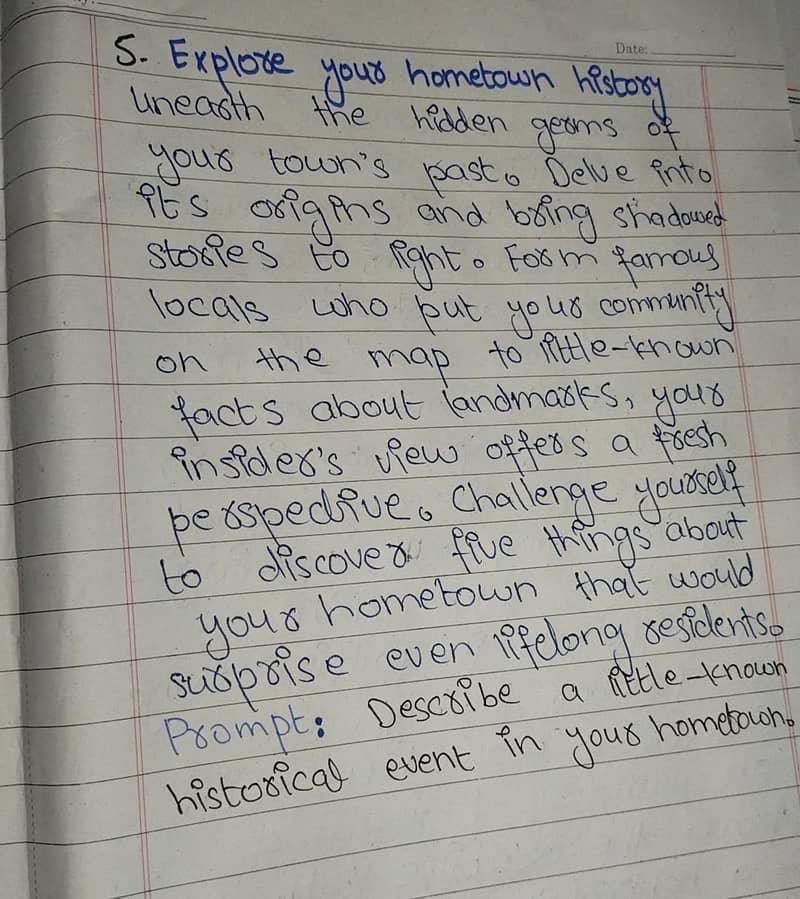 Date:
5. Explore your hometown history
Unearth the hidden gerns of
your town's past. Delve into
its origins and bring shadowed
stories to light. Form famous
locals who put your community
on the map to little-known
facts about landmarks, your
insider's view offers a fresh
perspective. Challenge yourself
to discover five things about
your hometown that would
surprise even lifelong residents.
Prompt: Describe a little-known
historical event in your hometown.